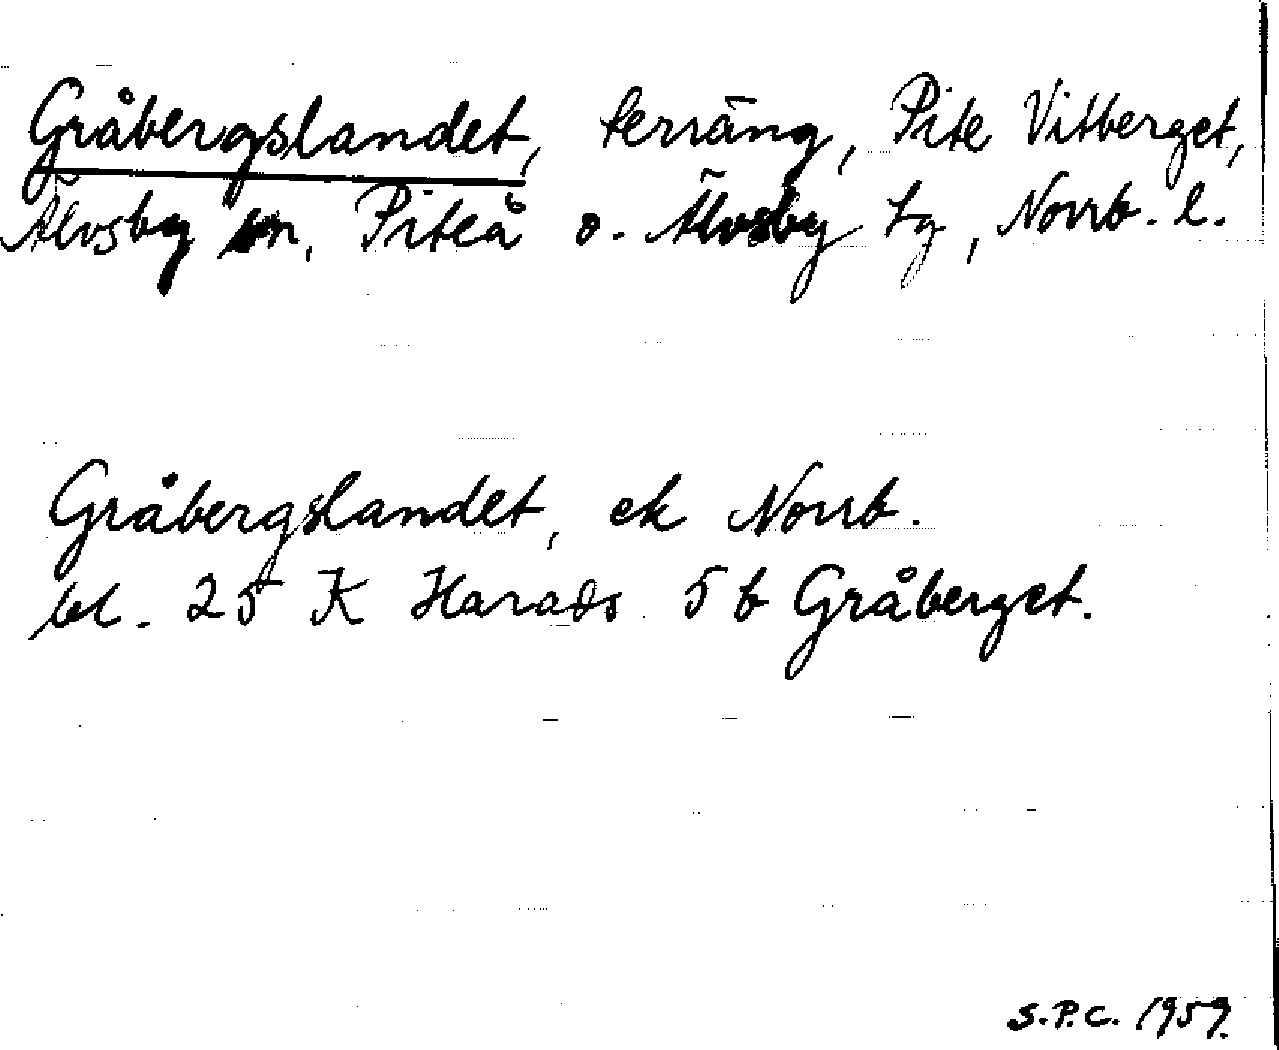 Gråbergslandet, terräng, Pite Vitberget,
Älvsby sn, Piteå o. Älvsby tg, Norrb. l.
Gråbergslandet, ek Norrb.
bl. 25 K Harads 5 b Gråberget.
S.P.C. 1959.